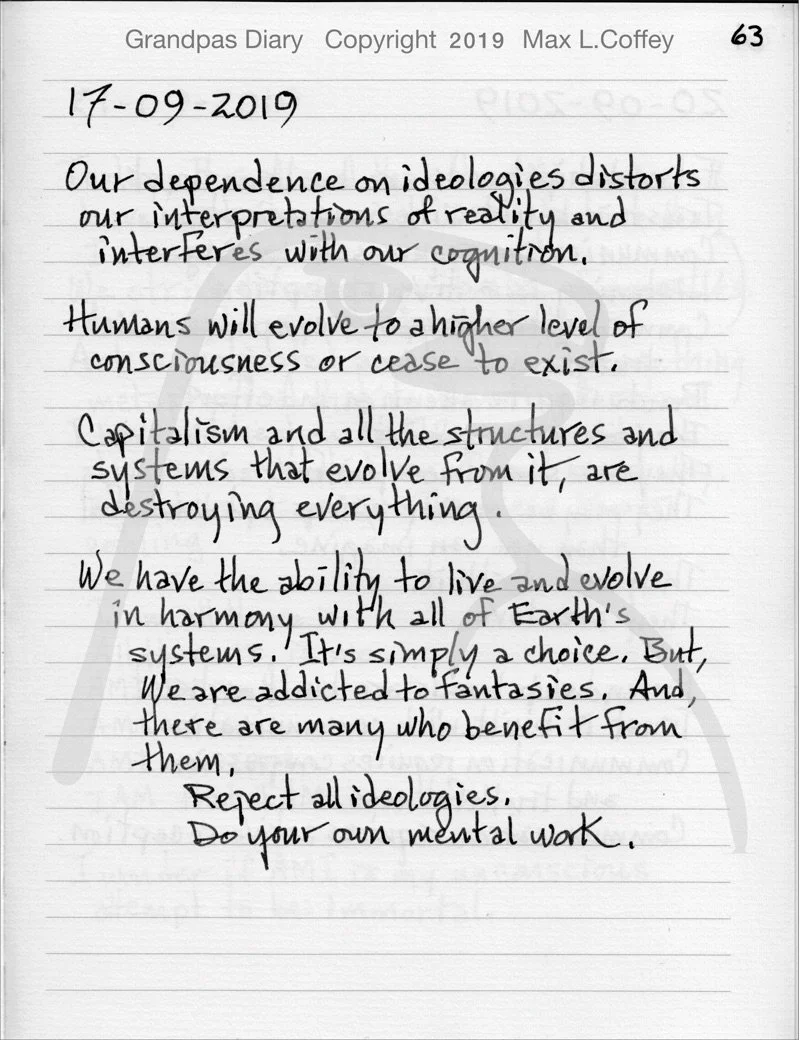 Grandpas Diary Copyright 2019 Max L.Coffey 63
17-09-2019
Our dependence on ideologies distorts
our interpretations of reality and
interferes with our cognition.
Humans will evolve to a higher level of
consciousness or cease to exist.
Capitalism and all the structures and
systems that evolve from it, are
destroying everything.
We have the ability to live and evolve
in harmony with all of Earth's
systems. It's simply a choice. But,
We are addicted to fantasies. And,
there are many who benefit from
them.
Reject all ideologies.
Do your own mental work.